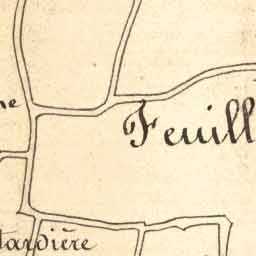 ne
Feuill
lardière